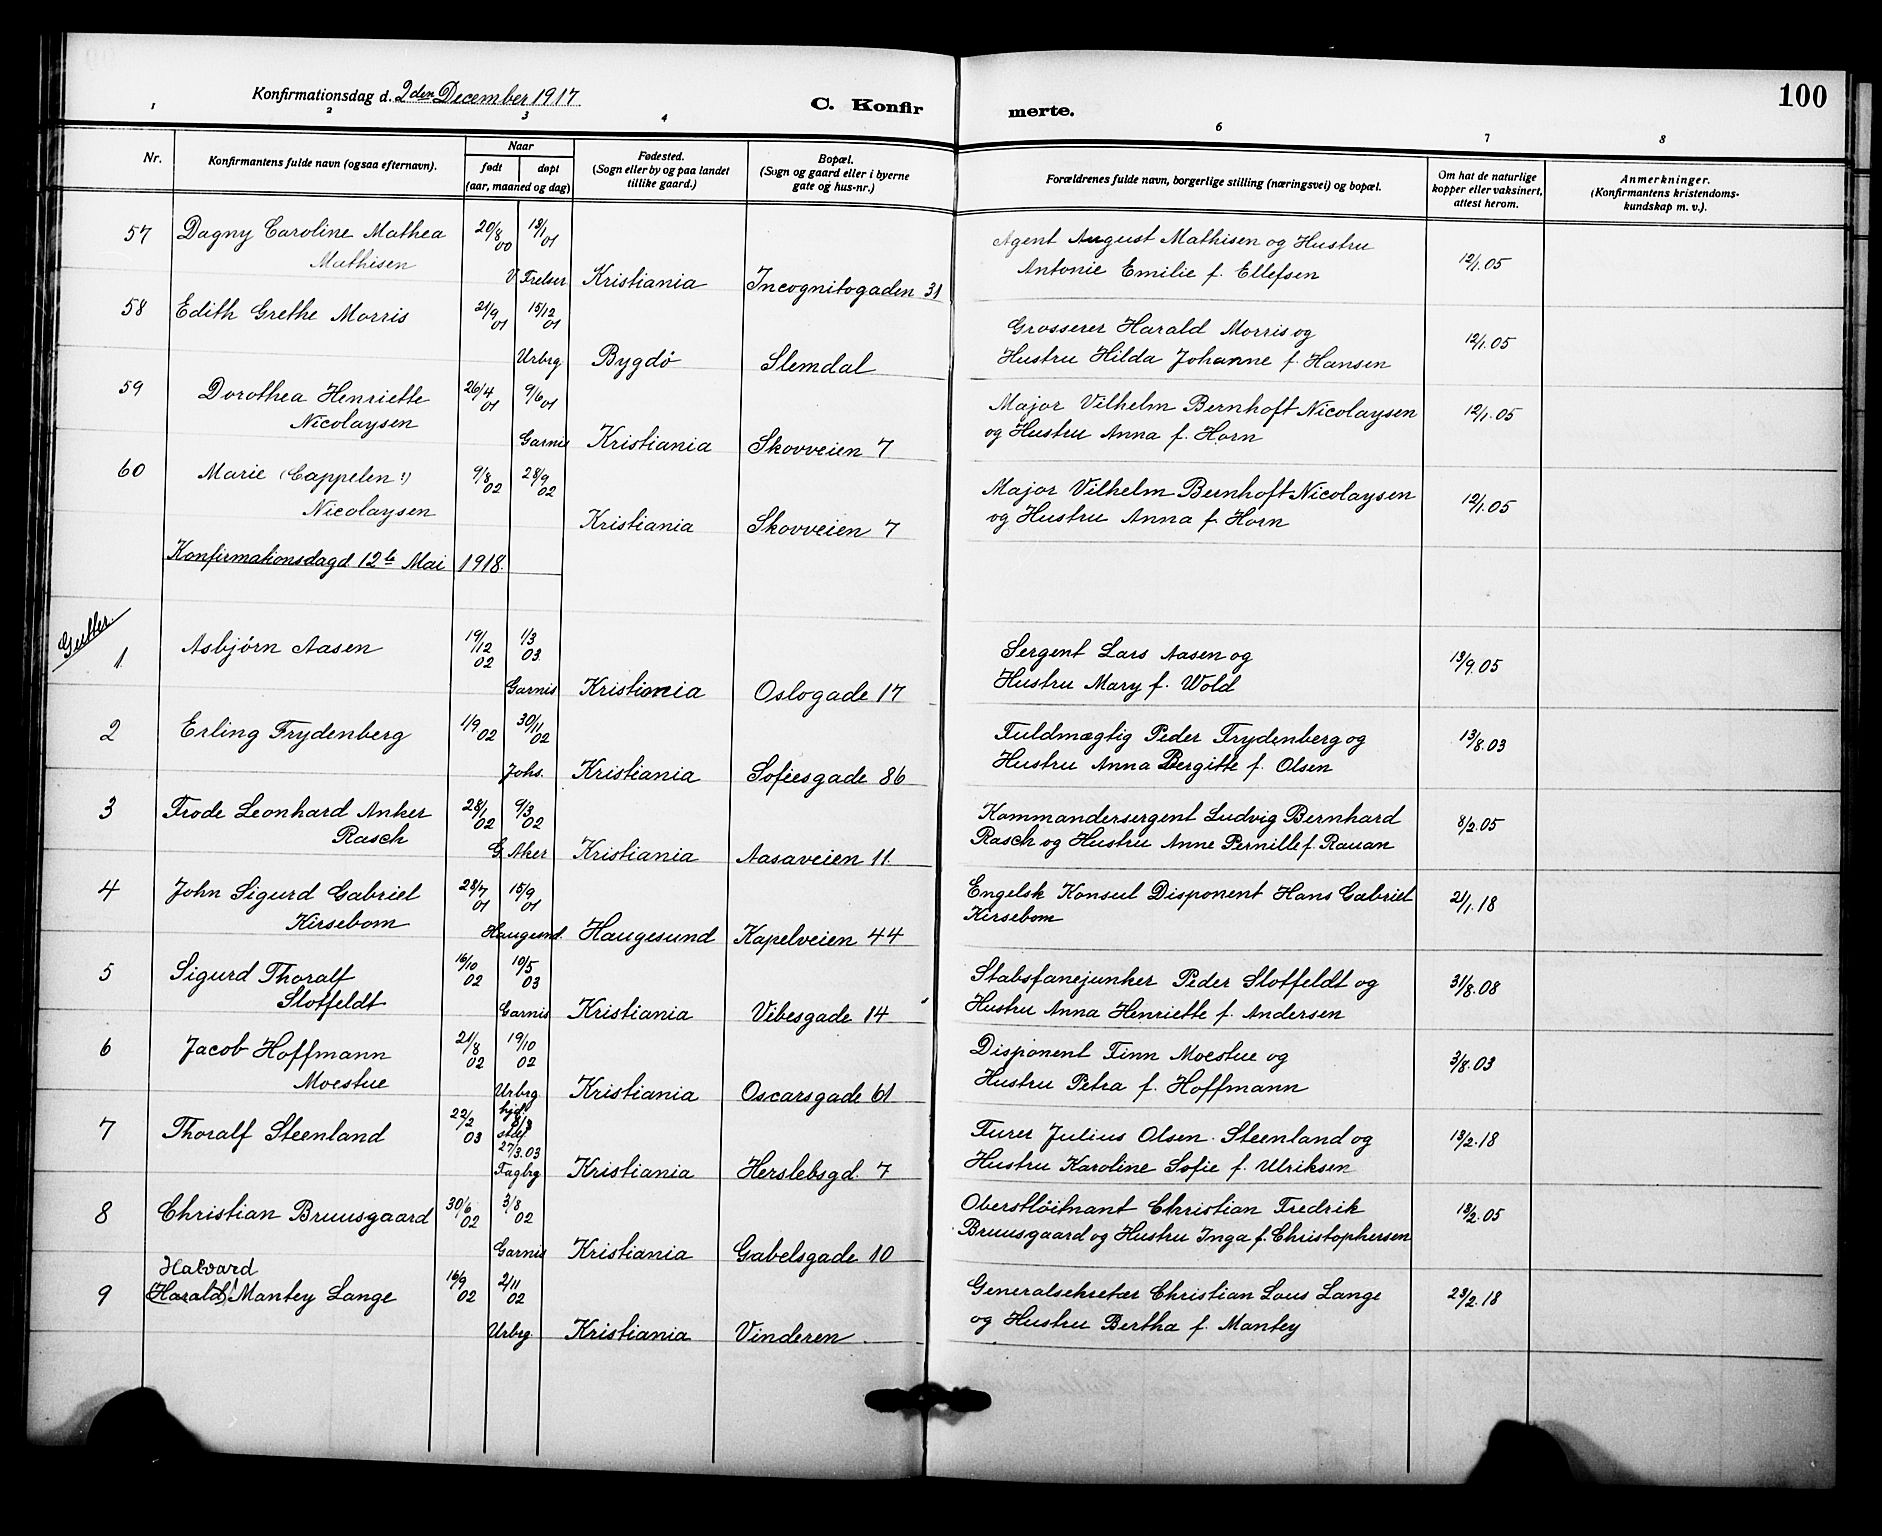 100
Konfirmationsdag d. 2den December 1917
C. Konfir merte.
1 2 3 4 6 7 8
Nr.
Konfirmantens fulde navn (ogsaa efternavn).
Naar
født døpt
(aar, maaned og dag)
Fødested.
(Sogn eller by og paa landet
tillike gaard.)
Bopæl.
(Sogn og gaard eller i byerne
gate og hus-nr.)
Forældrenes fulde navn, borgerlige stilling (næringsvei) og bopæl.
Om hat de naturlige
kopper eller vaksinert,
attest herom.
Anmerkninger.
(Konfirmantens kristendoms-
kundskap m. v.).
57 Dagny Caroline Mathea 20/8 00 13/1 01 Agent August Mathisen og Hustru 12/1.05
Mathisen V. Frelser Kristiania Incognitogaden 31 Antonie Emilie f. Ellefsen
58 Edith Grethe Morris 21/9 01 15/12 01 Grosserer Harald Morris og 12/1.05
Urbrg Bygdø Slemdal Hustru Hilda Johanne f. Hansen
59 Dorothea Henriette 26/4 01 9/6 01 Major Vilhelm Bernhoft Nicolaysen 12/1.05
Nicolaysen Garnis Kristiania Skovveien 7 og Hustru Anna f. Horn
60 Marie (Cappelen !) 9/8 02 28/9 02 Major Vilhelm Bernhoft Nicolaysen 12/1.05
Nicolaysen Kristiania Skovveien 7 og Hustru Anna f. Horn
Konfirmationsdag d 12te Mai 1918.
Gutter.
1 Asbjørn Aasen 19/12 02 1/3 03. Sergent Lars Aasen og 13/9.05
Garnis Kristiania Oslogade 17 Hustru Mary f. Wold
2 Erling Frydenberg 1/9 02 30/11 02 Fuldmægtig Peder Frydenberg og 13/8.03
Johs. Kristiania Sofiesgade 86 Hustru Anna Bergitte f. Olsen
3 Frode Leonhard Anker 28/1 02 9/3 02 Kommandersergent Ludvig Bernhard 8/2.05
Rasch G. Aker Kristiania Aasaveien 11 Rasch og Hustru Anne Pernille f. Rauan
4 John Sigurd Gabriel 28/7 01 15/9 01 Engelsk Konsul Disponent Hans Gabriel 21/1.18
Kirsebom Haugesnd. Haugesund Kapelveien 44 Kirsebom
5 Sigurd Thoralf 16/10 02 10/5 03 Stabsfanejunker Peder Slotfeldt og 31/8.08
Slotfeldt Garnis Kristiania Vibesgade 14 Hustru Anna Henriette f. Andersen
6 Jacob Hoffmann 21/8 02 19/10 02 Disponent Finn Moestue og 3/8.03
Moestue Urbrg Kristiania Oscarsgade 61 Hustru Petra f. Hoffmann
7 Thoralf Steenland 22/2 03 hjd. 8/3 stdf. 27/3.03 Furer Julius Olsen Steenland og 13/2.18
Fagbrg Kristiania Herslebsgd. 7 Hustru Karoline Sofie f. Ulriksen
8 Christian Bruusgaard 30/6 02 3/8 02 Oberstløitnant Christian Fredrik 13/2.05
Garnis Kristiania Gabelsgade 10 Bruusgaard og Hustru Inga f. Christophersen
Halvard
9 (Harald!) Mantey Lange 16/9 02 2/11 02 Generalsekretær Christian Lous Lange 23/2.18
Urbrg. Kristiania Vinderen og Hustru Bertha f. Mantey